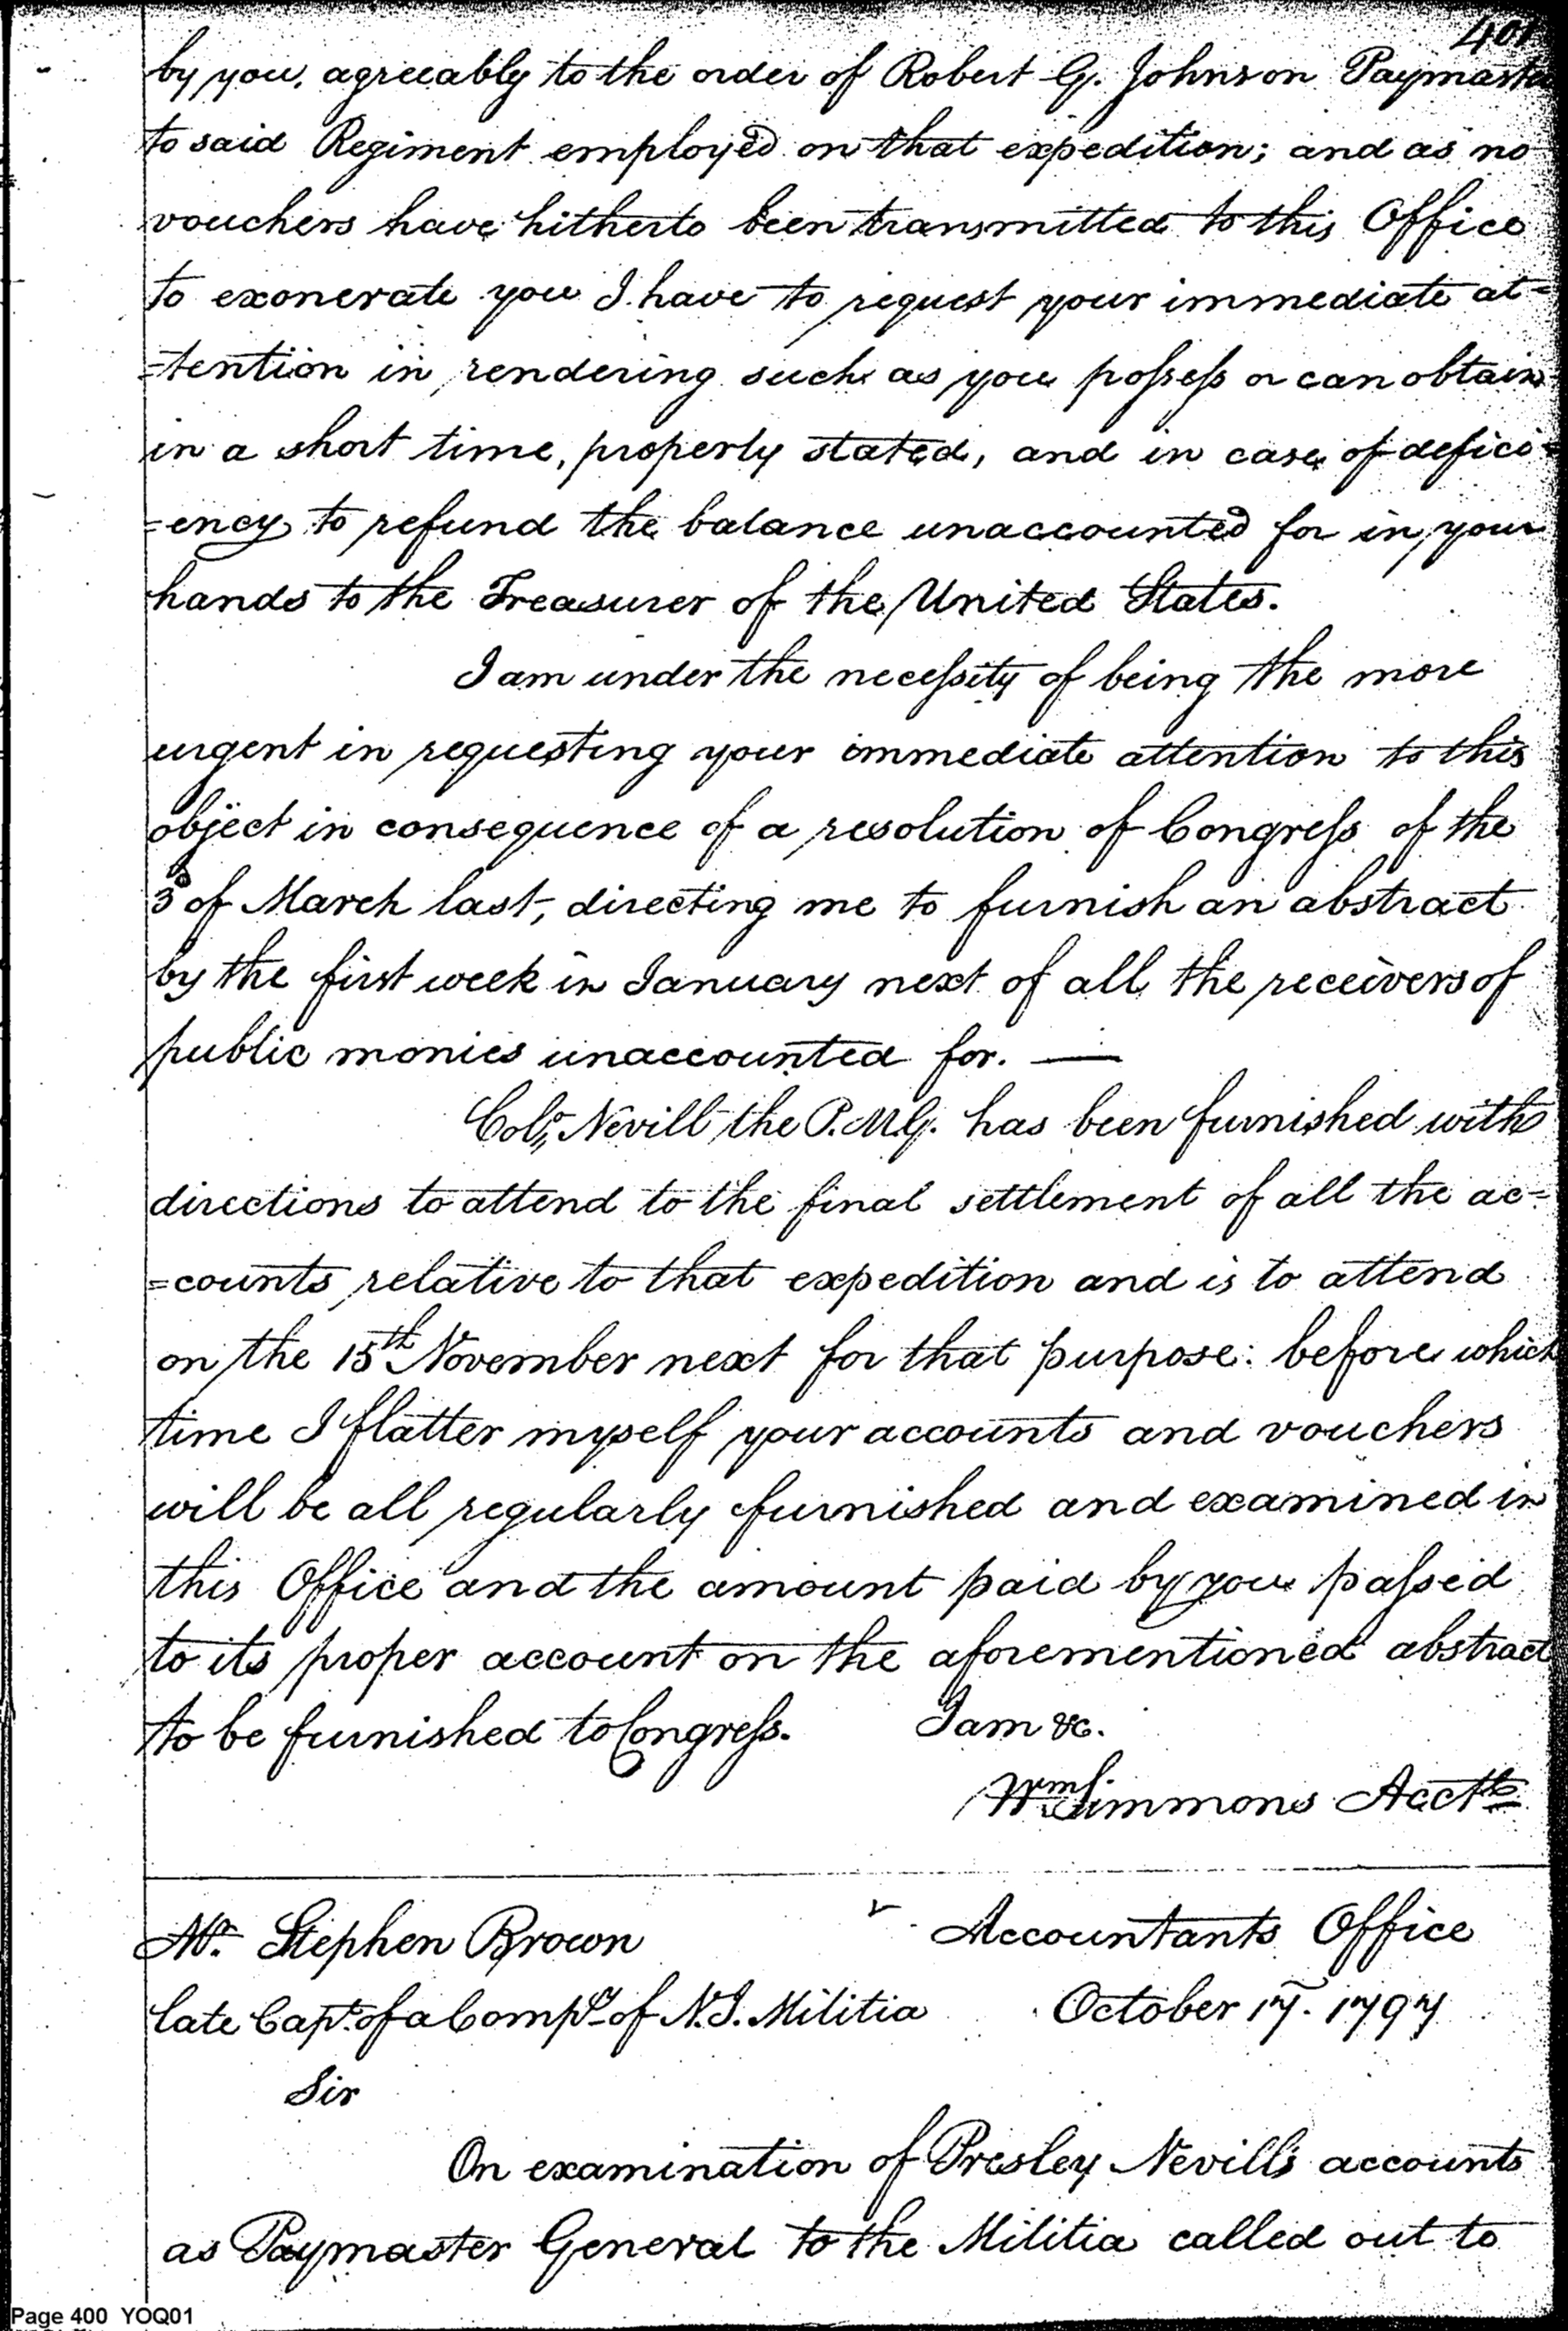 401
by you, agreeably to the order of Robert G. Johnson Paymaster
to said Regiment employed on that expedition; and as no
vouchers have hitherto been transmitted to this Office
to exonerate you I have to request your immediate at=
=tention in rendering such as you possess or can obtain
in a short time, properly stated, and in case of defici=
=ency to refund the balance unaccounted for in your
hands to the Treasurer of the United States.
I am under the necessity of being the more
urgent in requesting your immediate attention to this
object in consequence of a resolution of Congress of the
3d of March last, directing me to furnish an abstract
by the first week in January next of all the receivers of
public monies unaccounted for. —
Colo. Nevill the P.M.G. has been furnished with
directions to attend to the final settlement of all the ac=
=counts relative to that expedition and is to attend
on the 15th November next for that purpose: before which
time I flatter myself your accounts and vouchers
will be all regularly furnished and examined in
this Office and the amount paid by you passed
to its proper account on the aforementioned abstract
to be furnished to Congress. I am &c.
Wm Simmons Acctt
Mr. Stephen Brown Accountants Office
late Capt. of a Compy. of N.J. Militia October 17. 1797
Sir
On examination of Presley Nevill's accounts
as Paymaster General to the Militia called out to
Page 400 YOQ01